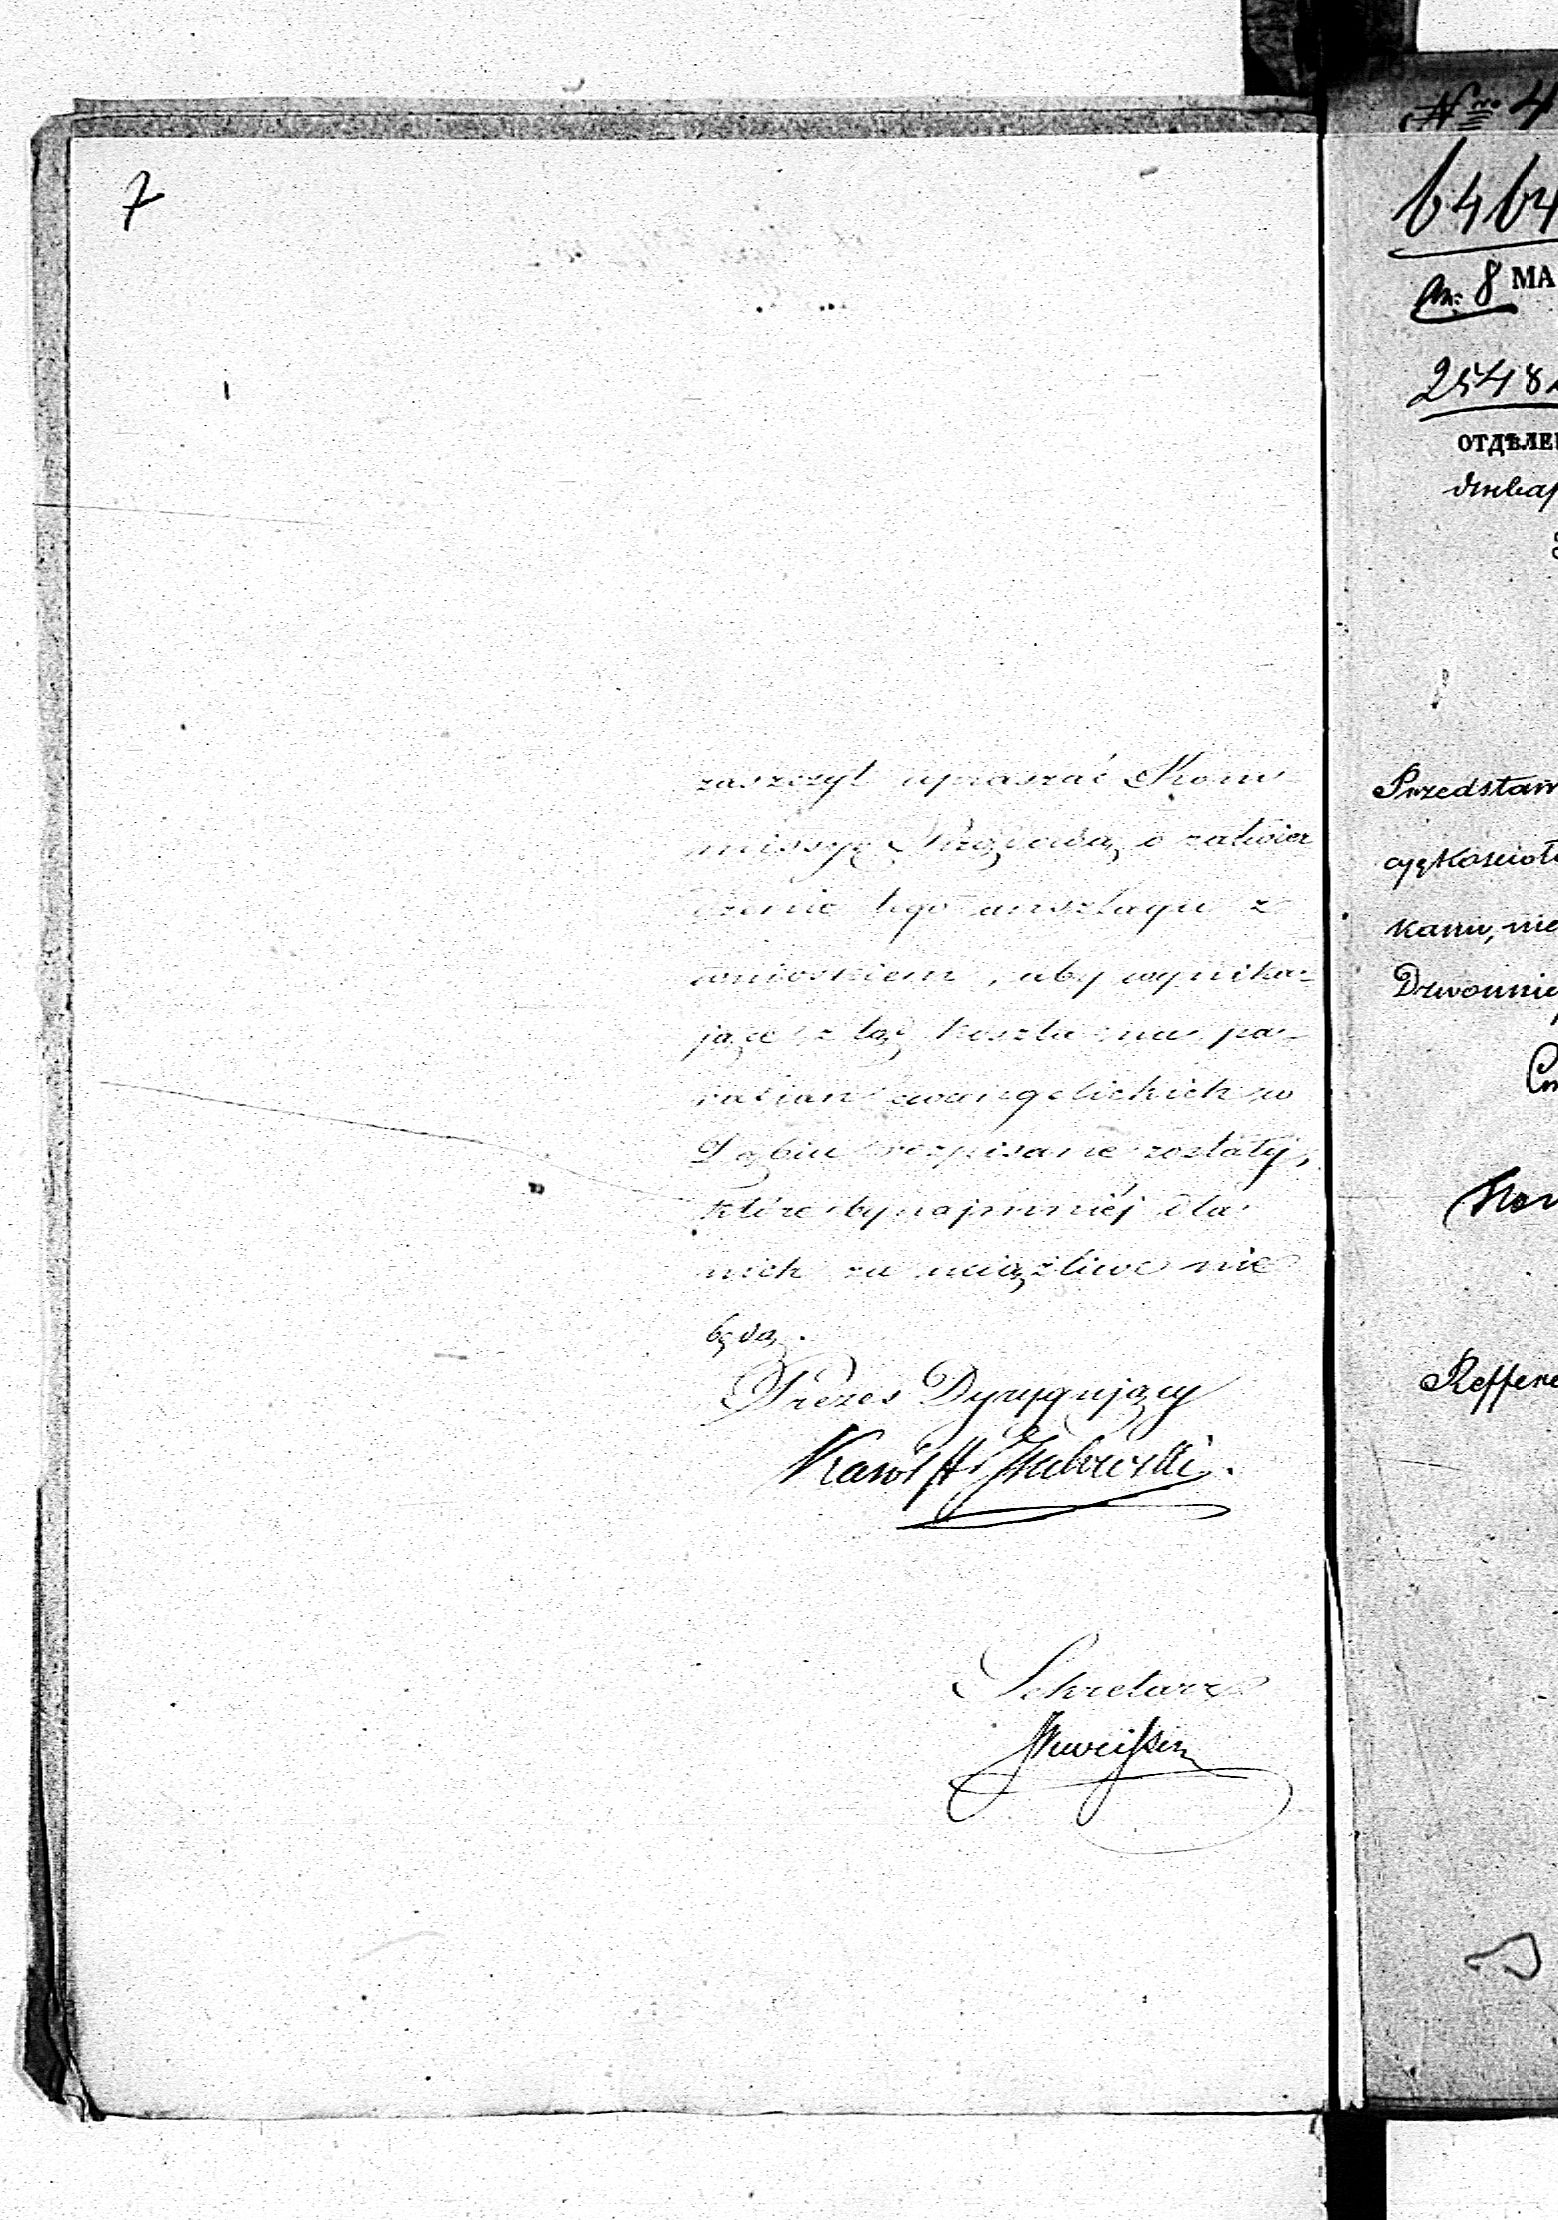 7
zaszczyt upraszać Kom
missyę Rządową o zatwier
dzenie tego anszlagu z
wnioskiem, aby wynika-
jące z tąd koszta na pa-
rafian ewangelickich w
Dąbiu rozpisane zostały,
które bynajmniéj dla
nich za uciążliwe nie
będą.
Prezes Dyrygujący
Karol
Sekretarz
N™ 4
6464
8 МА
2548
ОТДѢЛЕ
Январ
Przedstaw
cyę Kościoł
kami, nie
Dzwonnic
Reffere